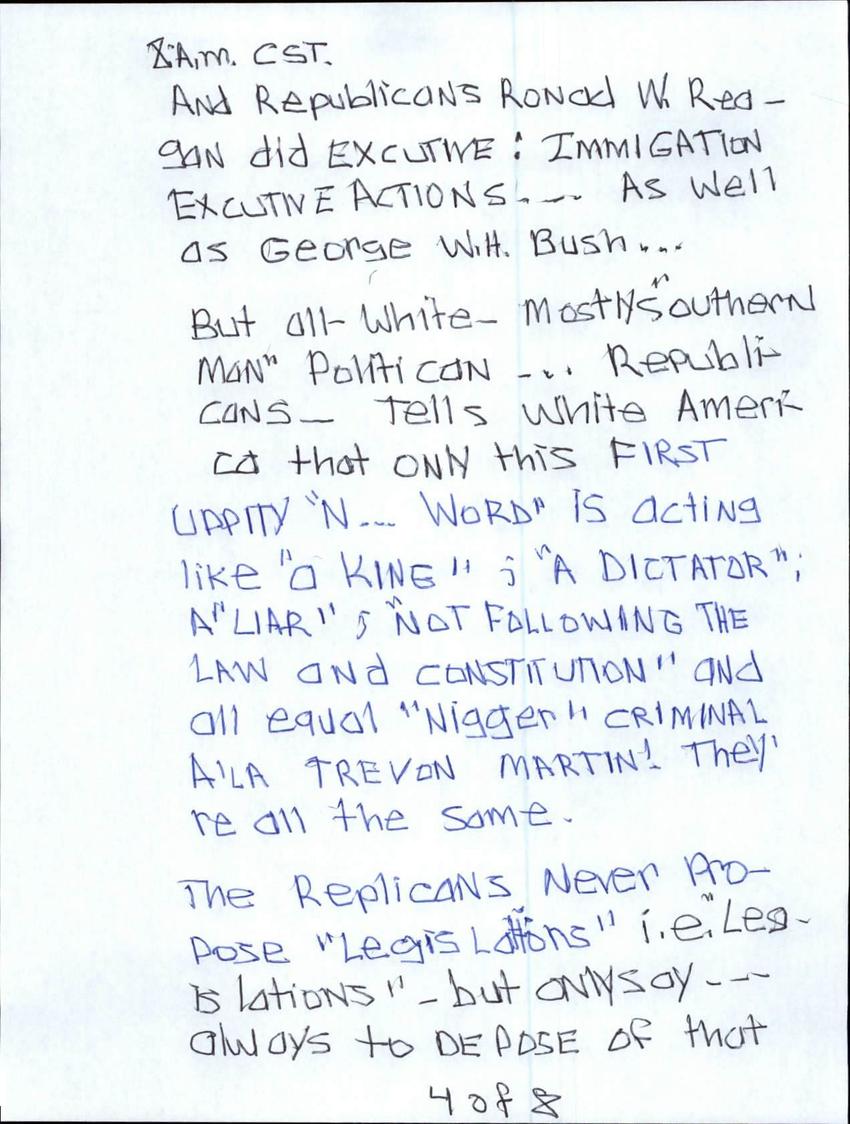 8:A.m. CST.
And Republicans Ronad W. Rea-
gan did EXCUTIVE : IMMIGATION
EXCUTIVE ACTIONS.--- As Well
as George W.H. Bush...
But all- White- Mostly "Southern
Man" Politican --.. Republi-
cans_ Tells White Ameri-
ca that ONly this FIRST
UPPITY "N... WORD" is acting
like "a KING" ; "A DICTATOR";
A "LIAR" ; "NOT FOLLOWING THE
LAW and CONSTITUTION" AND
all equal "Nigger" CRIMINAL
A'LA TREVON MARTIN! They'
re all the same.
The Replicans Never Pro-
pose "Legislations" i.e. "Leg-
islations" - but ONly say ---
always to DEPOSE of that
4 of 8